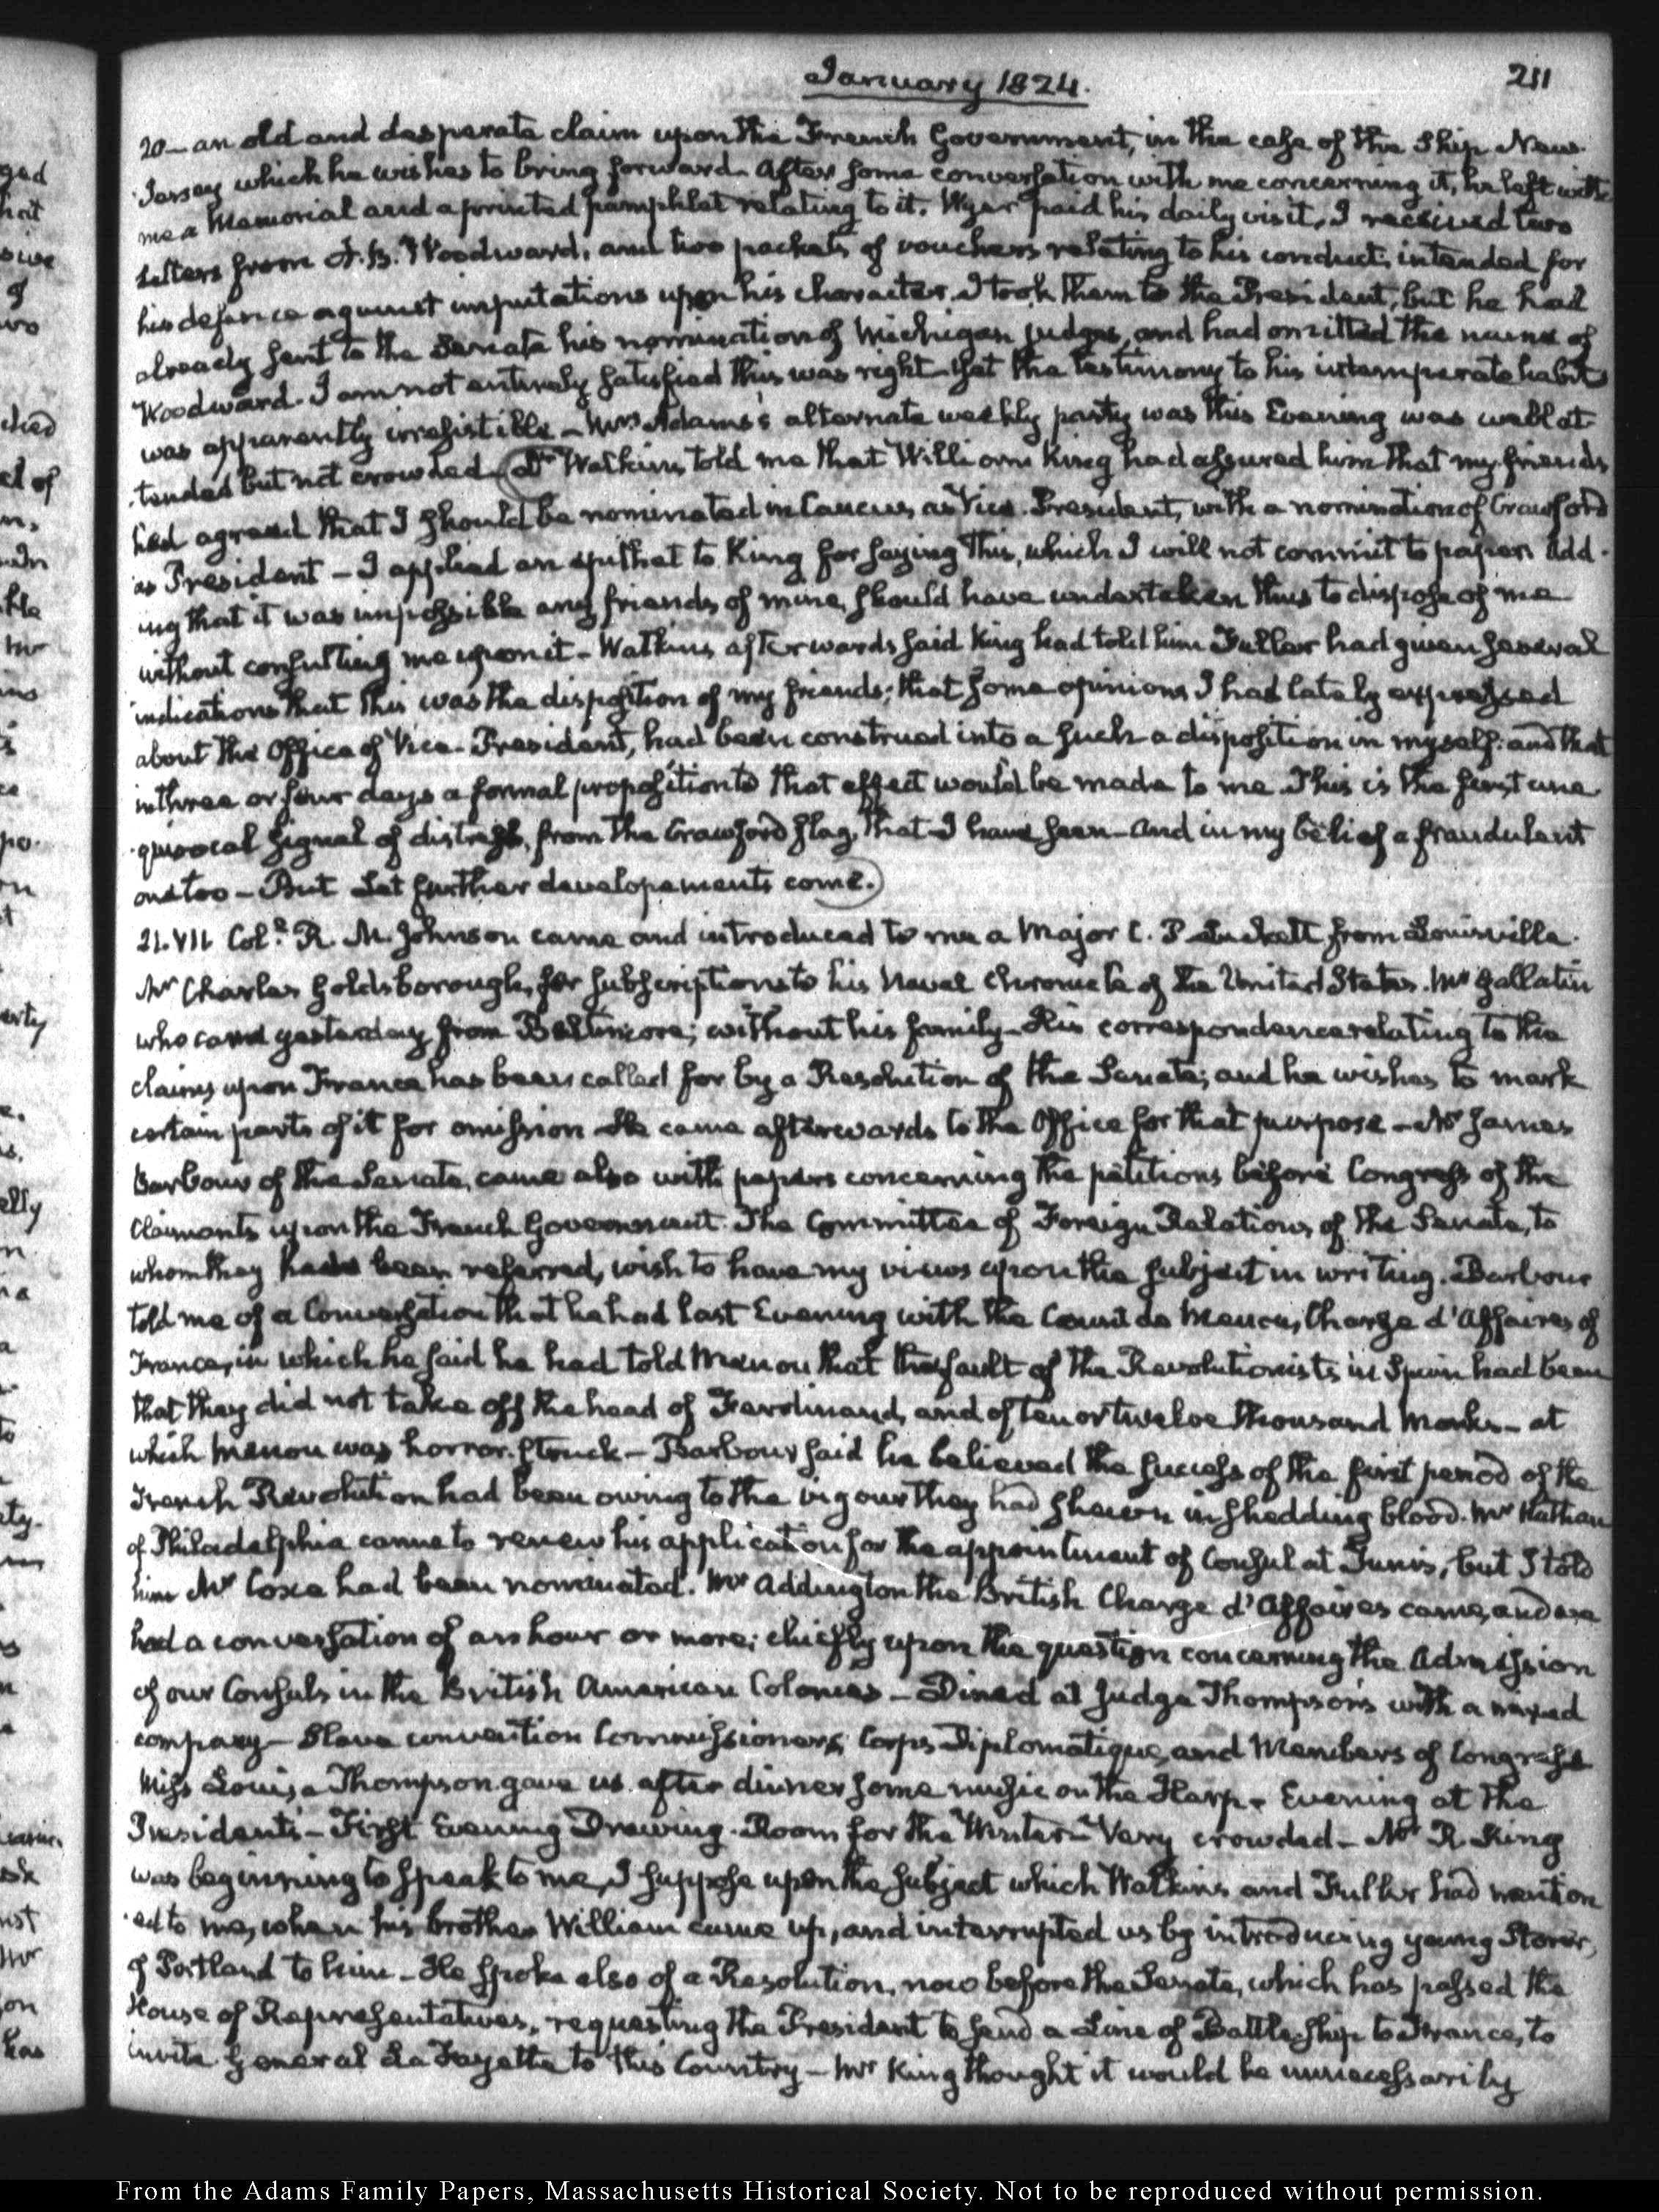 January 1824.
211
20 — an old and desperate claim upon the French Government, in the case of the Ship New-
Jersey which he wishes to bring forward. After some conversation with me concerning it, he left with
me a Memorial and a printed pamphlet relating to it. Wyer paid his daily visit. I received two
Letters from A. B. Woodward, and two packets of vouchers relating to his conduct, intended for
his defence against imputations upon his character. I took them to the President, but he had
already sent to the Senate his nomination of Michigan judges, and had omitted the name of
Woodward. I am not entirely satisfied this was right. Yet the testimony to his intemperate habits
was apparently irresistible — Mrs Adams's alternate weekly party was this Evening was well at-
tended but not crowded. Dr Watkins told me that William King had assured him that my friends
had agreed that I should be nominated in Caucus, as Vice-President, with a nomination of Crawford
as President — I applied an epithet to King for saying this, which I will not commit to paper. Add-
ing that it was impossible any friends of mine, should have undertaken thus to dispose of me
without consulting me upon it — Watkins afterwards said King had told him Fuller had given several
indications that this was the disposition of my friends; that some opinions I had lately expressed
about the Office of Vice-President, had been construed into a such a disposition in myself: and that
in three or four days a formal proposition to that effect would be made to me. This is the first une-
quivocal signal of distress, from the Crawford flag, that I have seen — And in my belief a fraudulent
one too — But Let further developements come.
21. VII. Coll. R. M. Johnson came and introduced to me a Major C. P. Luckett from Louisville.
Mr Charles Goldsborough, for subscriptions to his Naval Chronicle of the United States. Mr Gallatin
who came yesterday from Baltimore; without his family — His correspondence relating to the
claims upon France has been called for by a Resolution of the Senate; and he wishes to mark
certain parts of it for omission. He came afterwards to the Office for that purpose — Mr James
Barbour of the Senate, came also with papers concerning the petitions before Congress of the
Claimants upon the French Government. The Committee of Foreign Relations, of the Senate, to
whom they had been referred, wish to have my views upon the subject in writing. Barbour
told me of a Conversation that he had last Evening with the Count de Menou, Charge d'Affaires of
France, in which he said he had told Menou that the fault of the Revolutionists in Spain had been
that they did not take off the head of Ferdinand, and of ten or twelve thousand Monks — at
which Menou was horror-struck — Barbour said he believed the success of the first period of the
French Revolution had been owing to the vigour they had shewn in shedding blood. Mr Nathan
of Philadelphia came to renew his application for the appointment of Consul at Tunis, but I told
him Mr Coxe had been nominated. Mr Addington the British Charge d'Affaires came, and we
had a conversation of an hour or more; chiefly upon the question concerning the Admission
of our Consuls in the British American Colonies — Dined at Judge Thompson's with a mixed
company — Slave convention Commissioners, Corps Diplomatique, and Members of Congress
Miss Louisa Thompson gave us after dinner some music on the Harp. Evening at the
President's — First Evening Drawing-Room for the Winter — Very crowded — Mr R. King
was beginning to speak to me, I suppose upon the subject which Watkins and Fuller had mention-
ed to me, when his brother William came up, and interrupted us by introducing young Storer,
of Portland to him — He spoke also of a Resolution, now before the Senate, which has passed the
House of Representatives, requesting the President to send a Line of Battle-Ship to France, to
invite General La Fayette to this Country — Mr King thought it would be unnecessarily
From the Adams Family Papers, Massachusetts Historical Society. Not to be reproduced without permission.